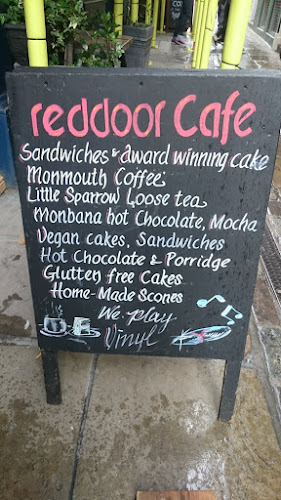 reddoor Cafe
Sandwiches & award winning cake
Monmouth Coffee
Little Sparrow Loose tea
Monbana hot Chocolate, Mocha
Vegan cakes, Sandwiches
Hot Chocolate & Porridge
Glutten free Cakes
Home-Made Scones
We play
Vinyl